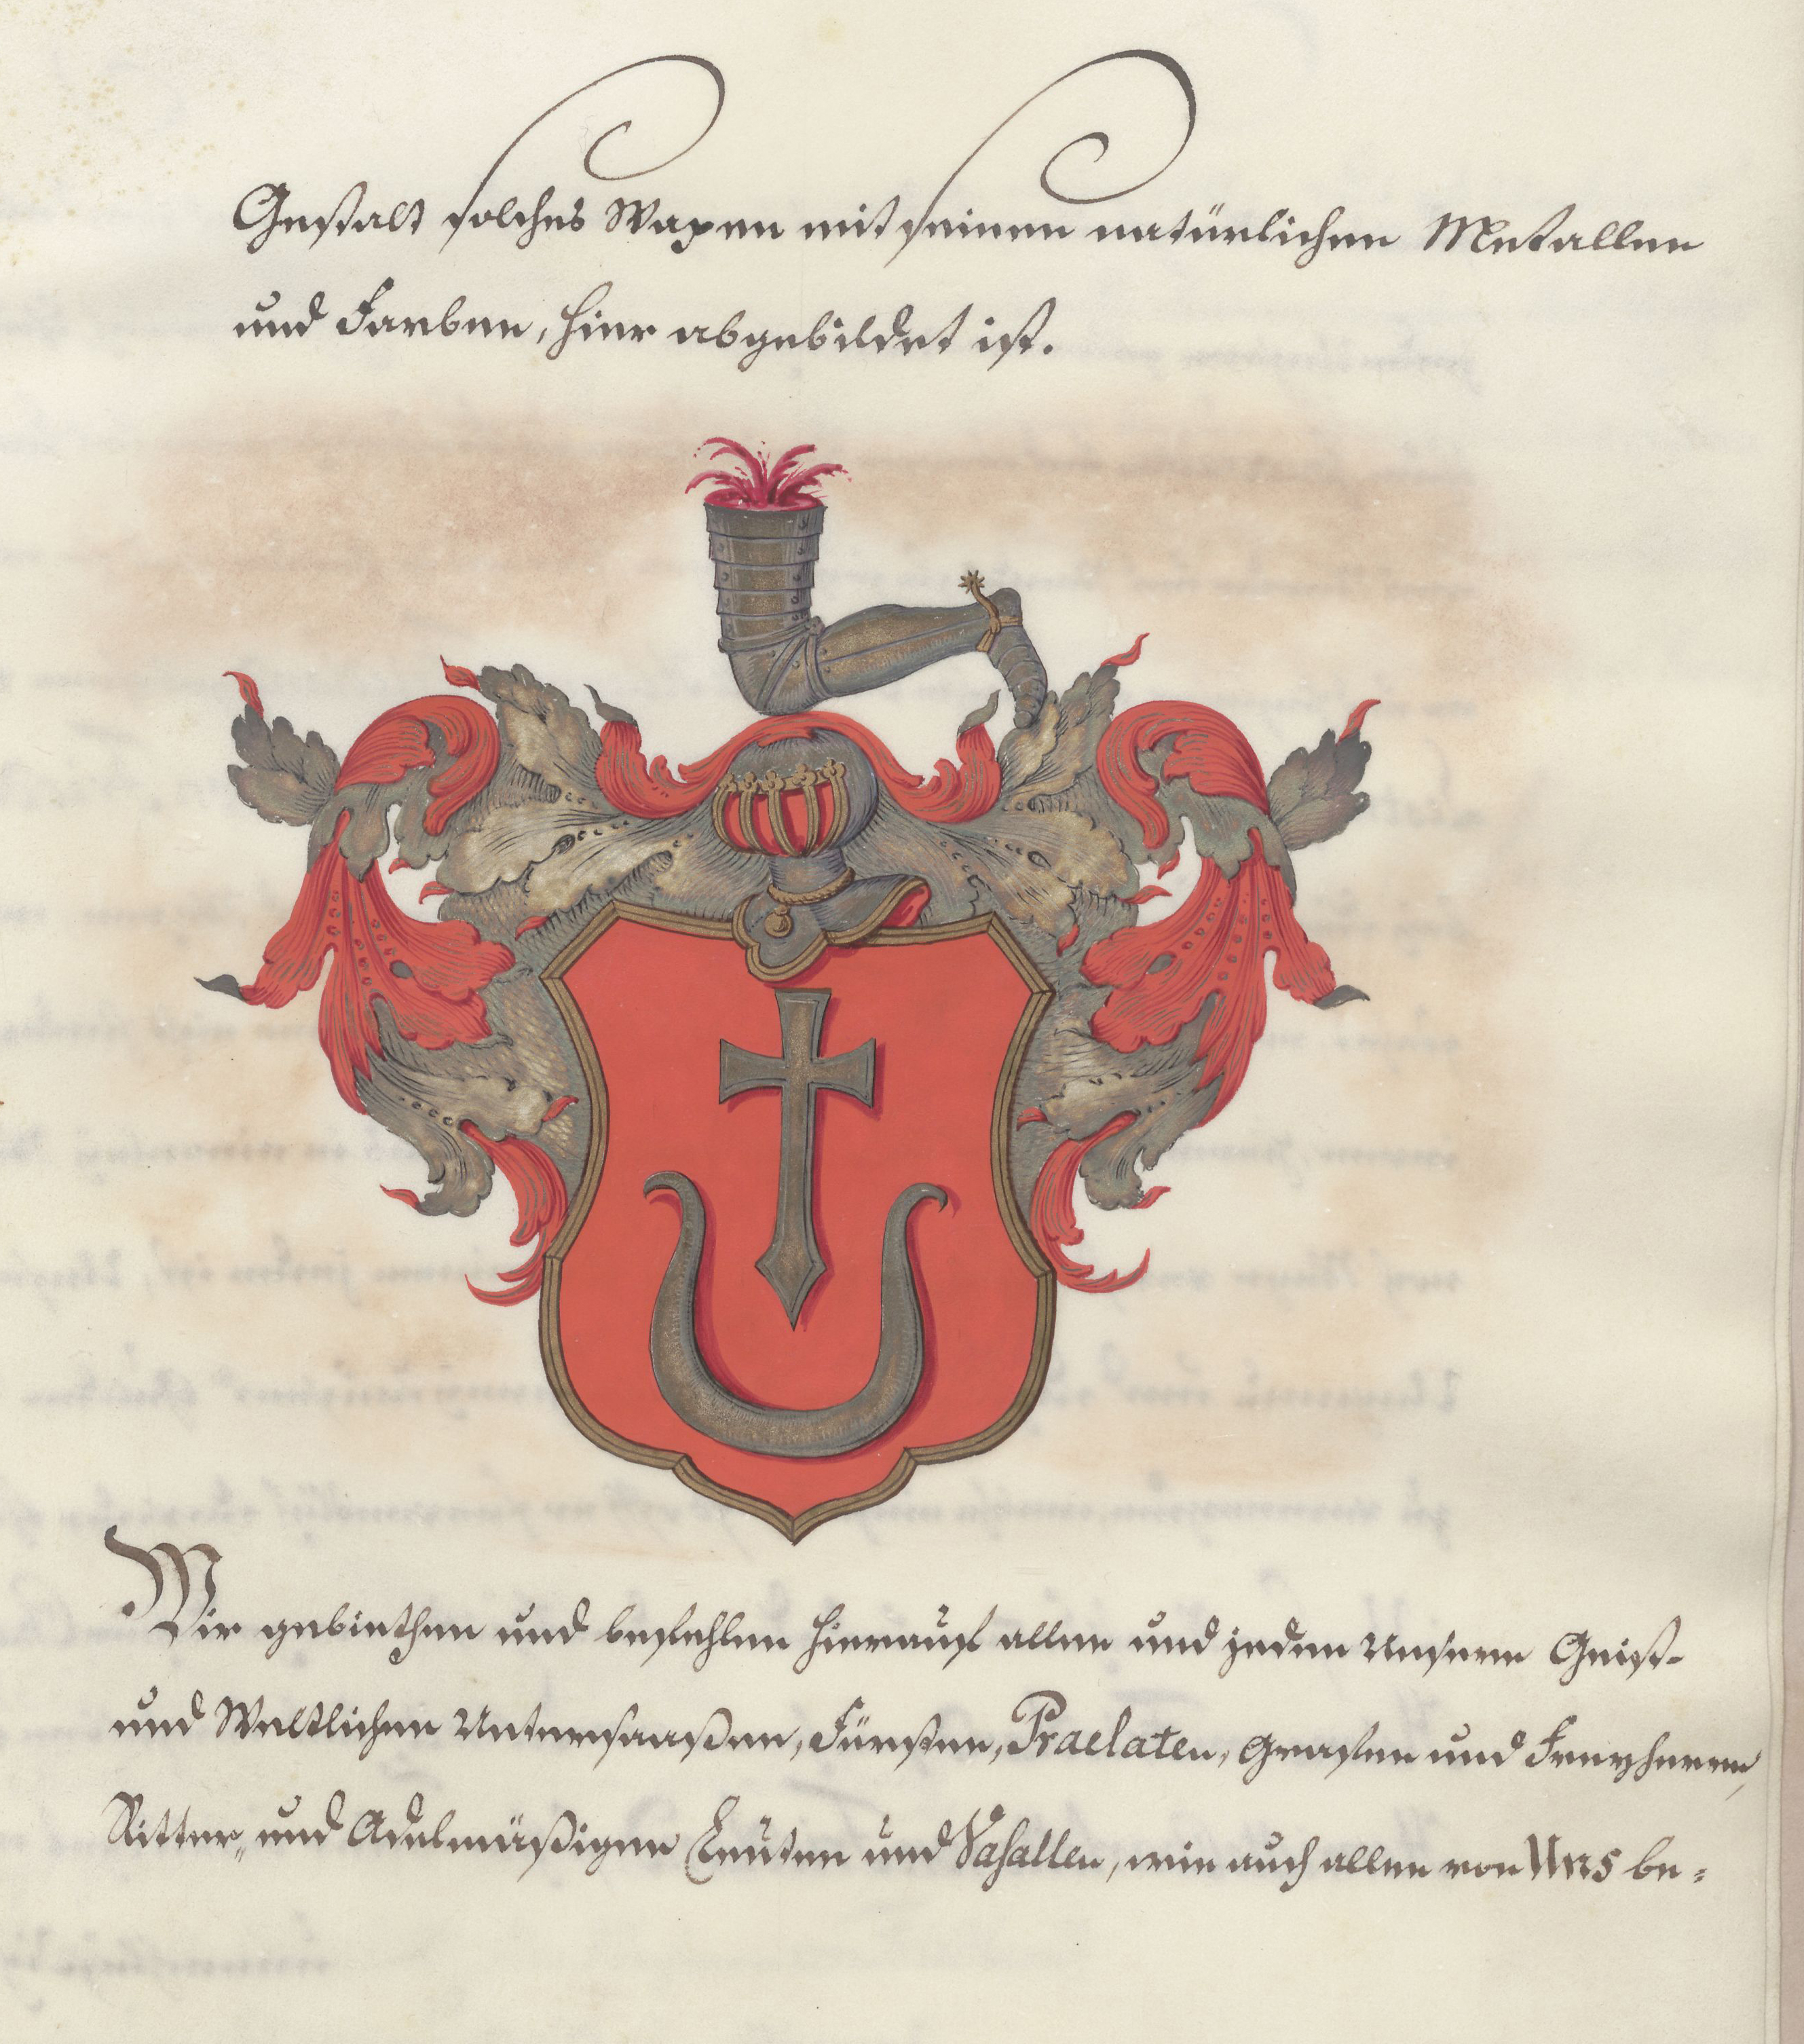 Gestalt solches Wapen mit seinen natürlichen Metallen
und Farben, hier abgebildet ist.
Wir gebiethen und befehlen hierauf allen und jeden Unseren Geist-
und Weltlichen Untersaaßen, Fürsten, Praelaten, Grafen und Freyherren,
Ritter„ und Adelmäßigen Leuten und Vasallen, wie auch allen von Uns be-